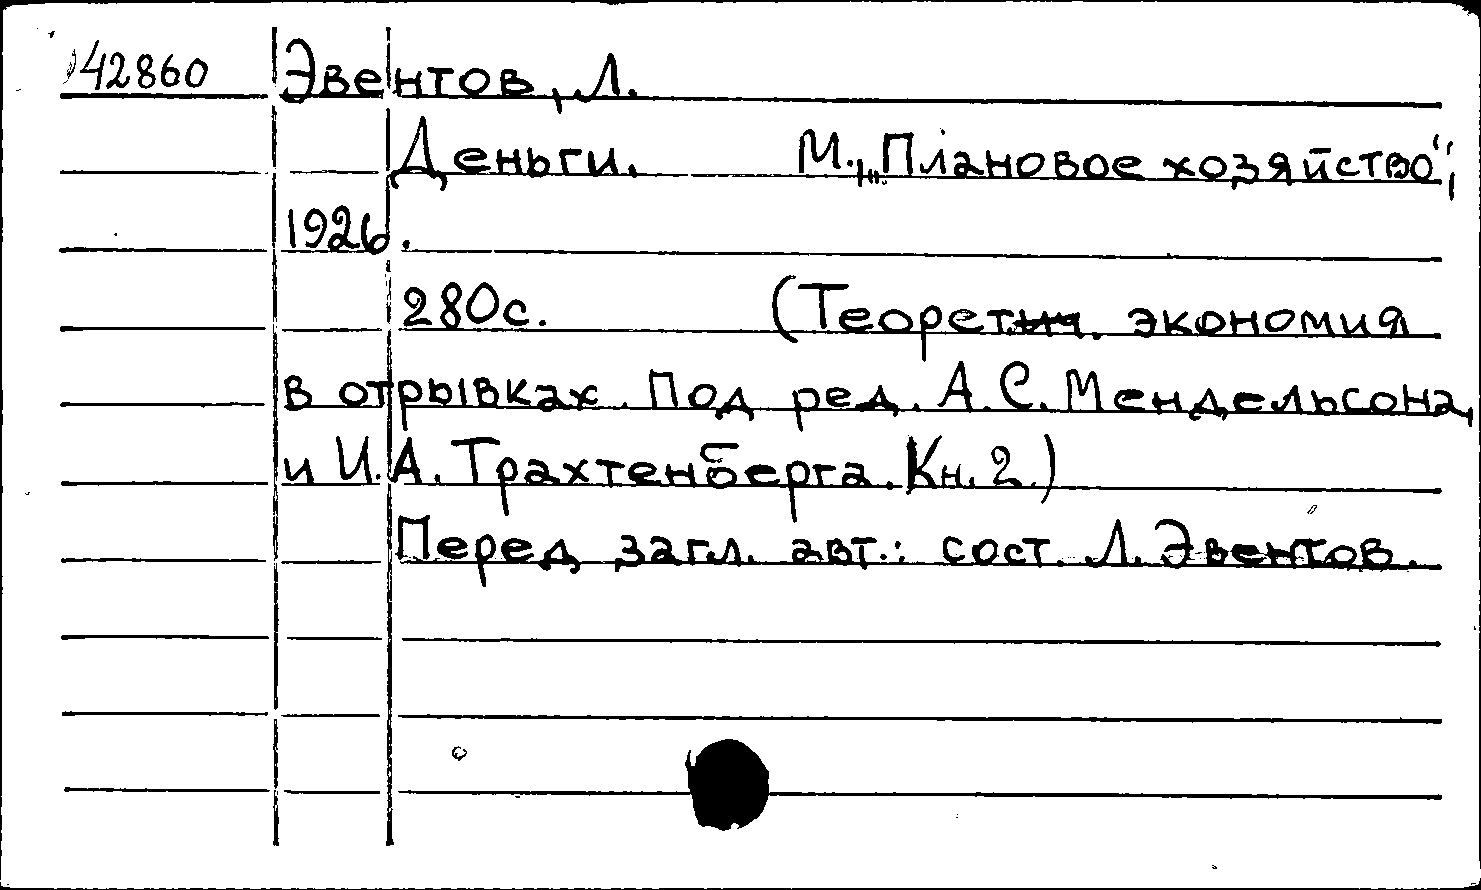 42860 Эвентов, Л.
Деньги. М., „Плановое хозяйство",
1926.
280с. (Теорет. экономия
в отрывках. Под ред. А.С. Мендельсона,
и И.А. Трахтенберга. Кн. 2.)
Перед загл. авт.: сост. Л. Эвентов.